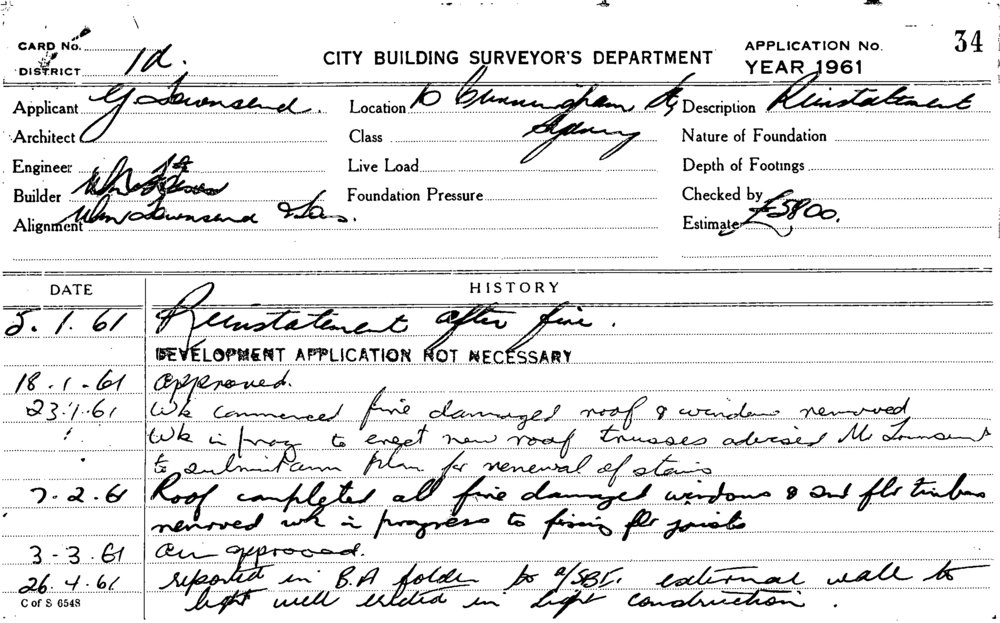 CARD No.
DISTRICT 1d.
CITY BUILDING SURVEYOR'S DEPARTMENT
APPLICATION No. 34
YEAR 1961
Applicant G Townsend. Location to Cunningham St, Sydney Description Reinstatement
Architect Class Nature of Foundation
Engineer Live Load Depth of Footings
Builder Foundation Pressure Checked by
Alignment Wm Townsend & Sons. Estimate £5800.
DATE HISTORY
5.1.61 Reinstatement after fire.
DEVELOPMENT APPLICATION NOT NECESSARY
18.1.61 approved.
23.1.61 Wk commenced fire damaged roof & windows removed
Wk in prog to erect new roof trusses advised Mr Townsend
to submit am plan for renewal of stairs
7.2.61 Roof completed all fire damaged windows & 2nd flr timbers
removed wk in progress to fixing flr joists
3-3.61 am approved.
26.4.61 reported in B.A folder to a/SBI. external wall to
light well erected in light construction.
C of S 6548